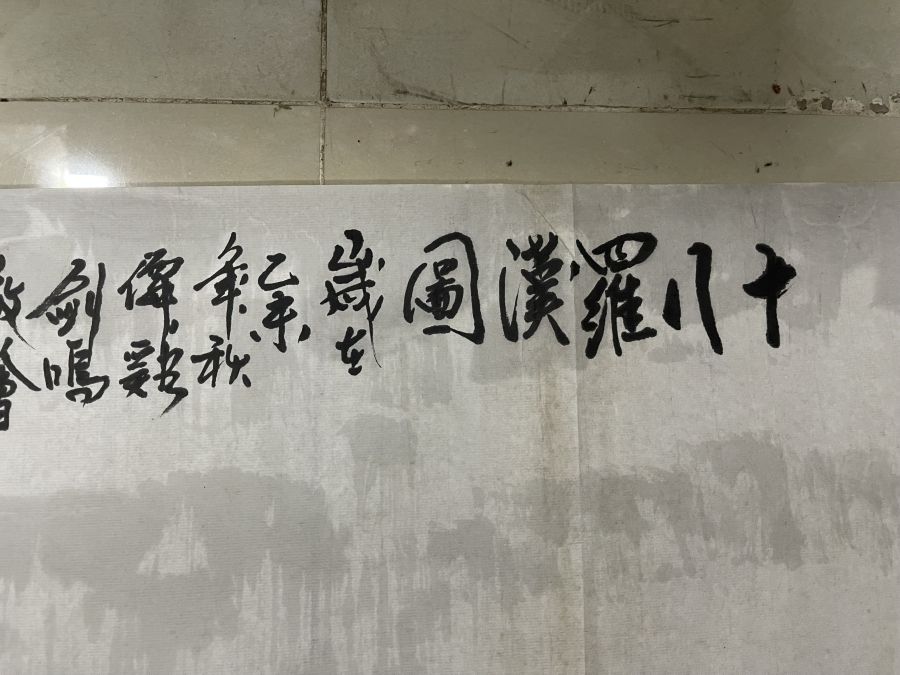 十八羅漢圖
歲在
乙未
年秋
僊谿
劍鳴
敬繪